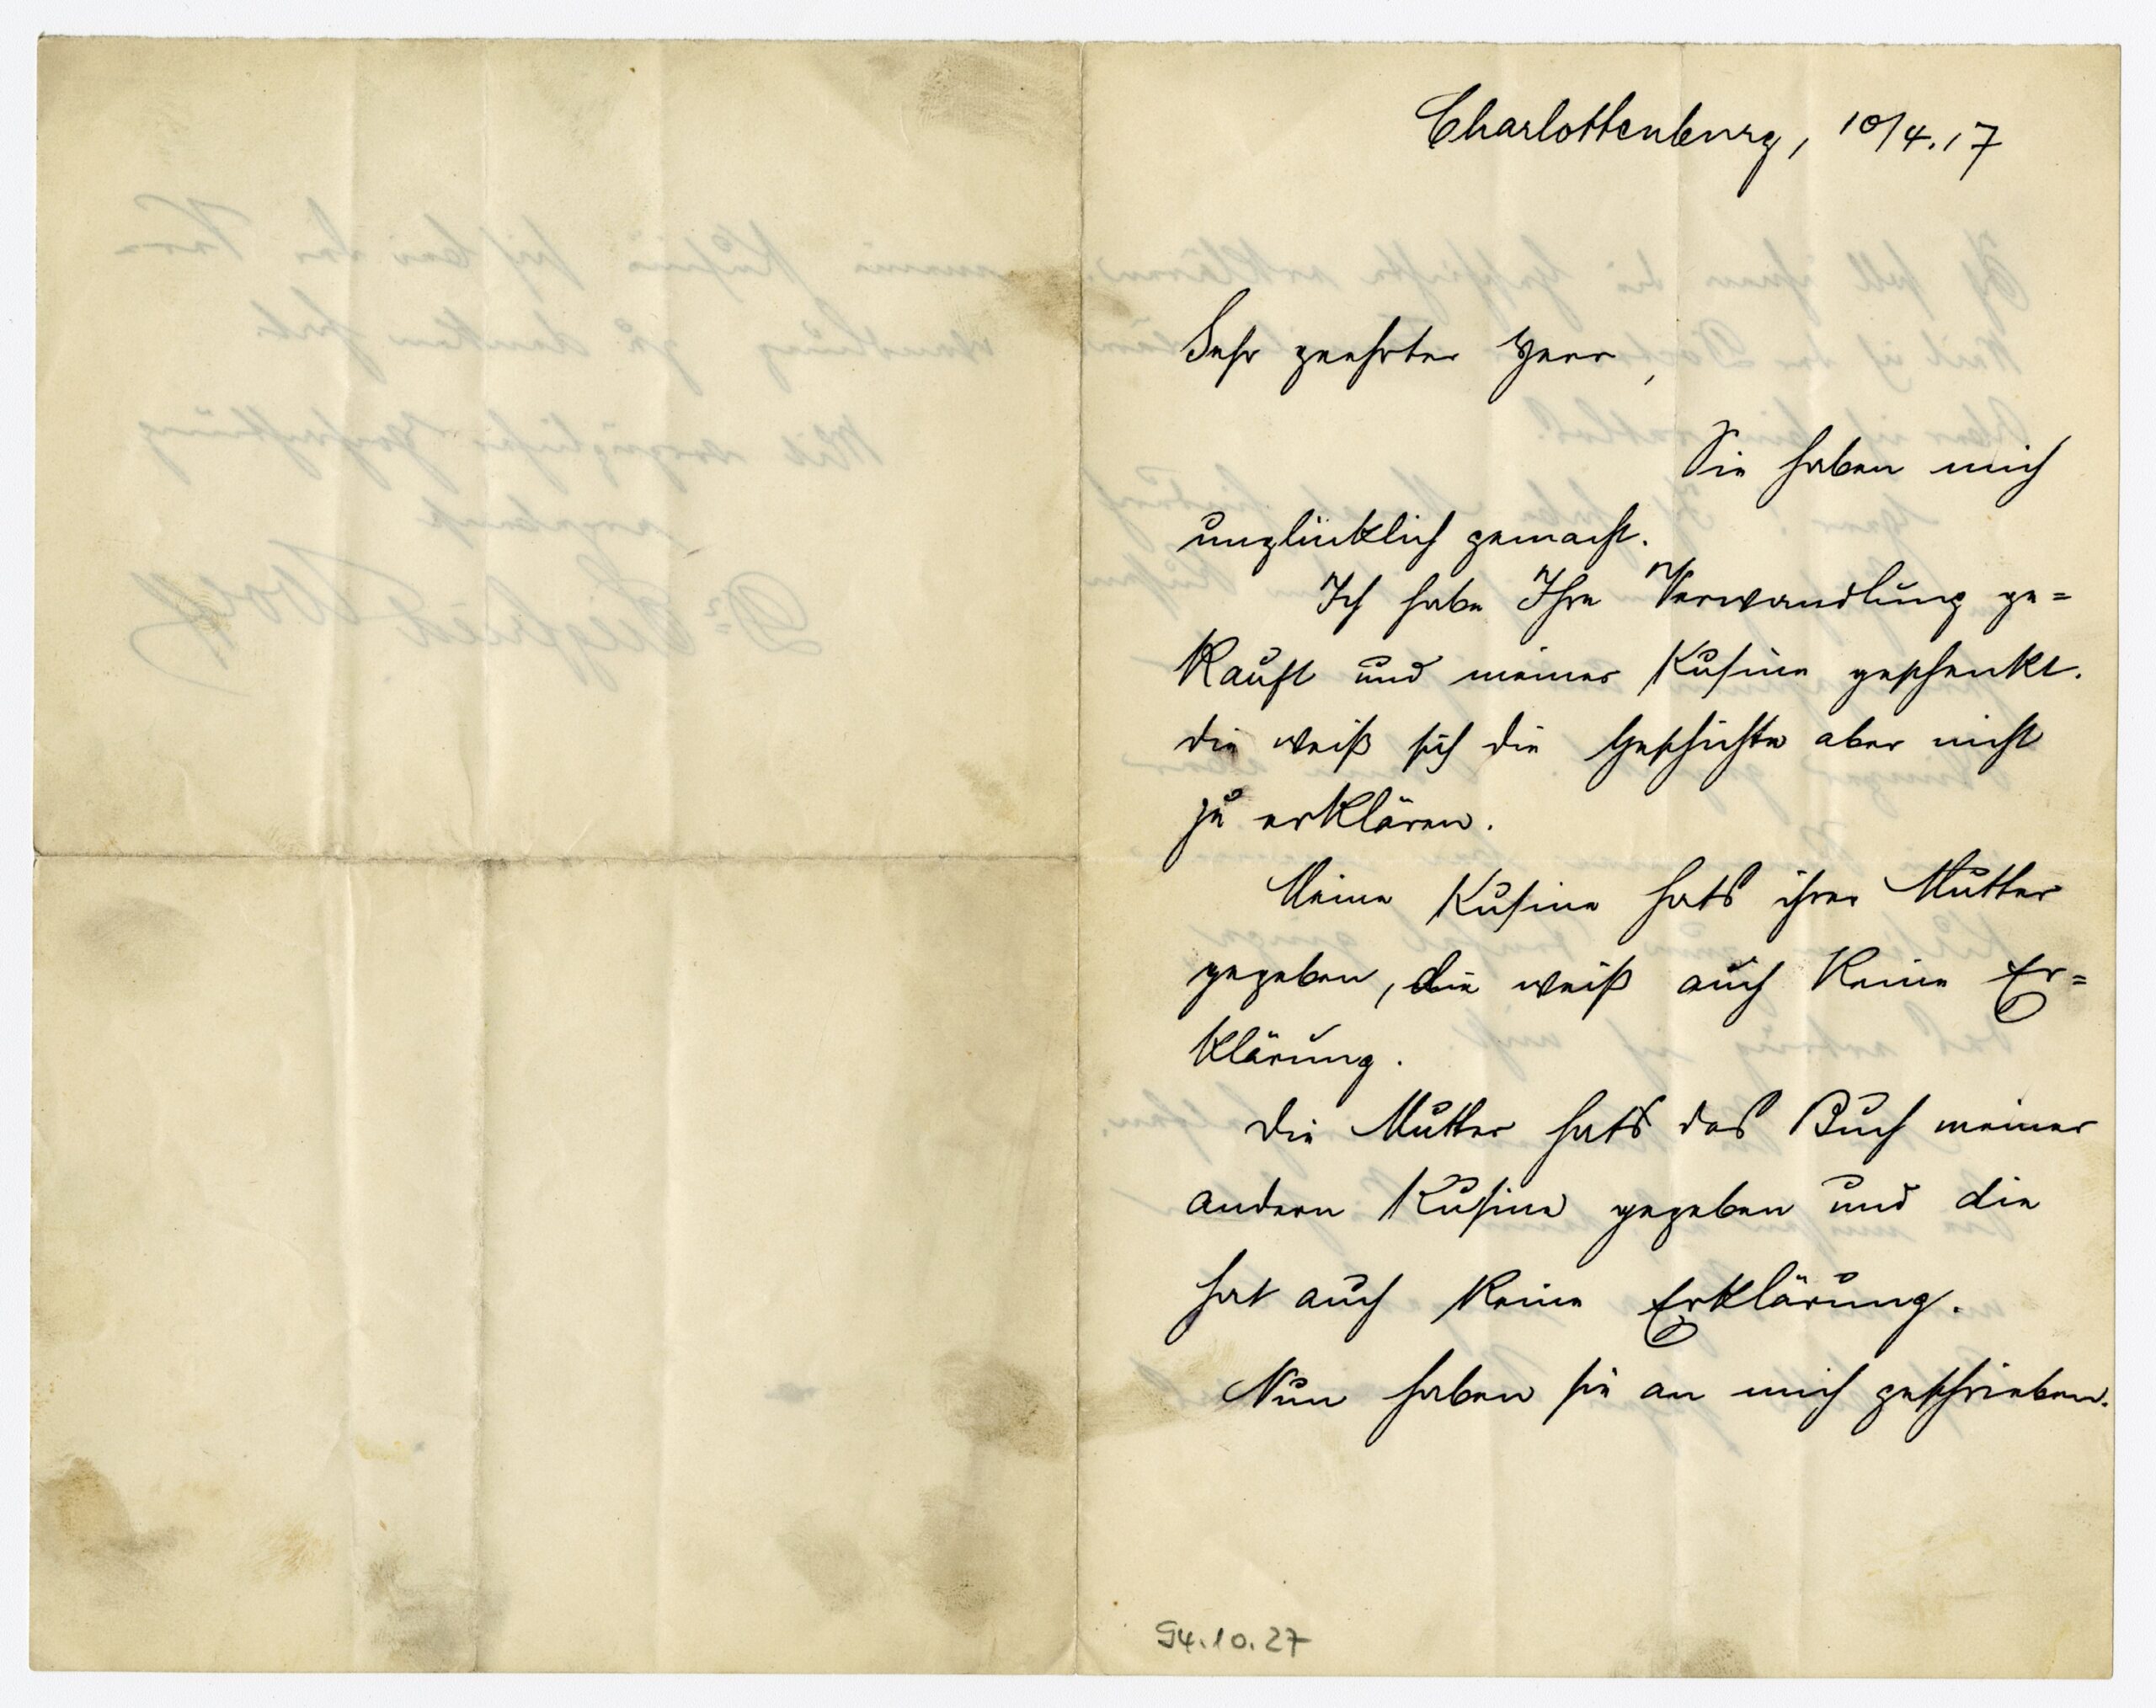 Charlottenburg, 10/4.17
Sehr geehrter Herr,
Sie haben mich
unglücklich gemacht.
Ich habe Ihre Verwandlung ge=
kauft und meiner Kusine geschenkt.
Die weiß sich die Geschichte aber nicht
zu erklären.
Meine Kusine hats ihrer Mutter
gegeben, die weiß auch keine Er=
klärung.
Die Mutter hats das Buch meiner
andern Kusine gegeben und die
hat auch keine Erklärung.
Nun haben sie an mich geschrieben.
94.10.27